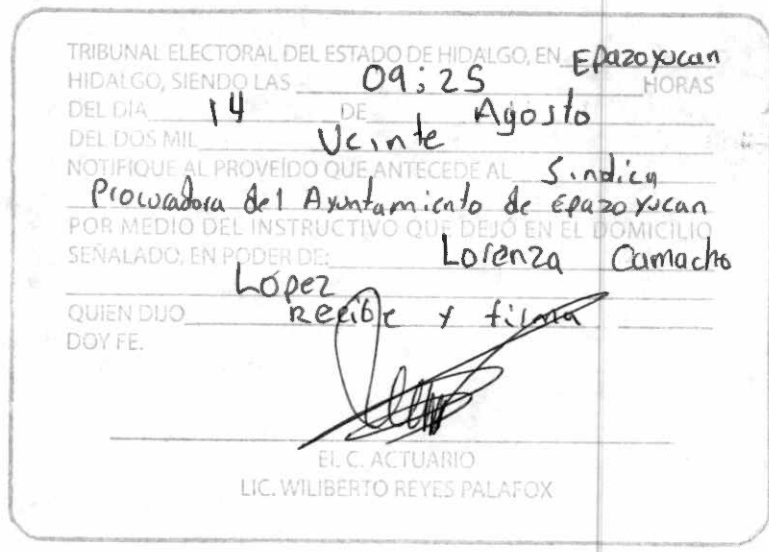 TRIBUNAL ELECTORAL DEL ESTADO DE HIDALGO, EN Epazoyucan
HIDALGO, SIENDO LAS 09:25 HORAS
DEL DÍA 14 DE Agosto
DEL DOS MIL Veinte
NOTIFIQUE AL PROVEÍDO QUE ANTECEDE AL Sindica
Procuradora del Ayuntamiento de Epazoyucan
POR MEDIO DEL INSTRUCTIVO QUE DEJÓ EN EL DOMICILIO
SEÑALADO, EN PODER DE: Lorenza Camacho
López
QUIEN DIJO recibe y firma
DOY FE.
EL C. ACTUARIO
LIC. WILIBERTO REYES PALAFOX